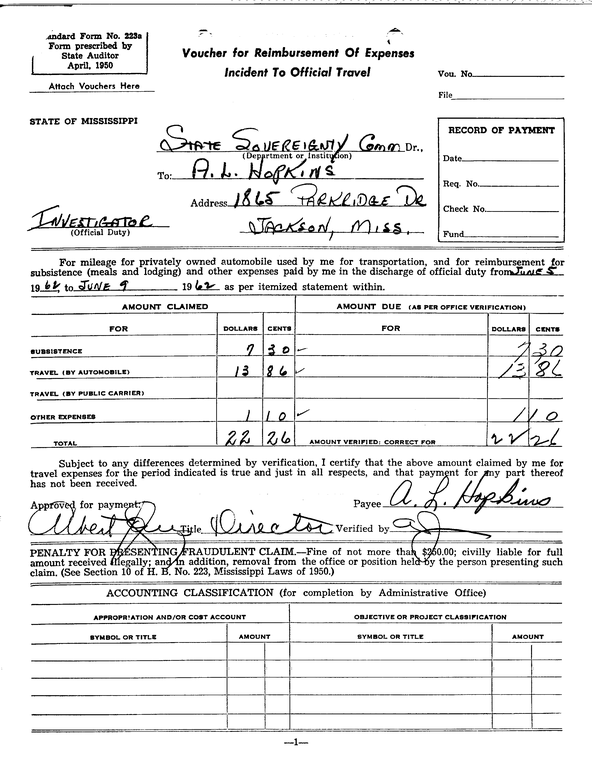 Standard Form No. 223a
Form prescribed by
State Auditor
April, 1950
Attach Vouchers Here
Voucher for Reimbursement Of Expenses
Incident To Official Travel
Vou. No.
File
STATE OF MISSISSIPPI
STATE SOVEREIGNTY COMM Dr.,
(Department or Institution)
To: A. L. HOPKINS
Address 1865 PARKRIDGE DR
JACKSON, MISS.
INVESTIGATOR
(Official Duty)
RECORD OF PAYMENT
Date
Req. No.
Check No.
Fund
For mileage for privately owned automobile used by me for transportation, and for reimbursement for
subsistence (meals and lodging) and other expenses paid by me in the discharge of official duty from JUNE 5
1962, to JUNE 9 1962 as per itemized statement within.
AMOUNT CLAIMED AMOUNT DUE (AS PER OFFICE VERIFICATION)
FOR DOLLARS CENTS FOR DOLLARS CENTS
SUBSISTENCE 7 30 7 30
TRAVEL (BY AUTOMOBILE) 13 86 13 86
TRAVEL (BY PUBLIC CARRIER)
OTHER EXPENSES 1 10 1 10
TOTAL 22 26 AMOUNT VERIFIED: CORRECT FOR 22 26
Subject to any differences determined by verification, I certify that the above amount claimed by me for
travel expenses for the period indicated is true and just in all respects, and that payment for any part thereof
has not been received.
Approved for payment: Payee A. L. Hopkins
Albert Title Director Verified by
PENALTY FOR PRESENTING FRAUDULENT CLAIM.—Fine of not more than $250.00; civilly liable for full
amount received illegally; and in addition, removal from the office or position held by the person presenting such
claim. (See Section 10 of H. B. No. 223, Mississippi Laws of 1950.)
ACCOUNTING CLASSIFICATION (for completion by Administrative Office)
APPROPRIATION AND/OR COST ACCOUNT OBJECTIVE OR PROJECT CLASSIFICATION
SYMBOL OR TITLE AMOUNT SYMBOL OR TITLE AMOUNT
—1—